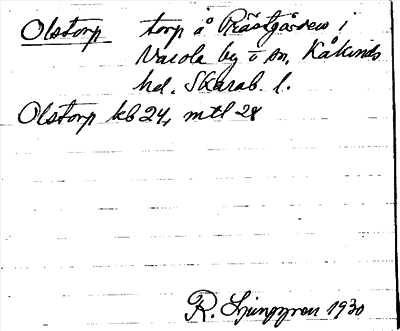 Olstorp torp å Prästgården i
Varola by o sn, Kåkinds
hd. Skarab. l.
Olstorp kb 24, mtl 28
R. Ljunggren 1930